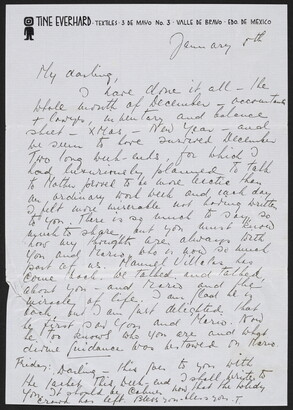 TINE EVERHARD · TEXTILES · 3 DE MAYO No. 3 · VALLE DE BRAVO · EDO DE MEXICO
January 8th
My darling,
I have done it all – the
whole month of December – accountants
+ lawyers, inventory and balance
sheet – XMas, – New Year – and
we seem to have survived December
Two long week-ends, for which I
had luxuriously planned to talk
to Mother proved to be more hectic than
an ordinary work week and each day
I felt more miserable not having written
to You. There is so much to say, so
much to share, but You must know
how my thoughts are always with
You and Mario, who is now so much
part of us. Manuel Villalas has
come back, we talked and talked
about You – and Mario and the
miracle of life. I am glad he is
back, but I am just delighted that
he first saw You and Mario. Now
he too knows who You are and what
divine guidance was bestowed on Mario.
Friday: Darling – this goes to You with
the jacket this week and I shall write to
You. It should be calmer now that the
crowd has left Bless you bless you. T.